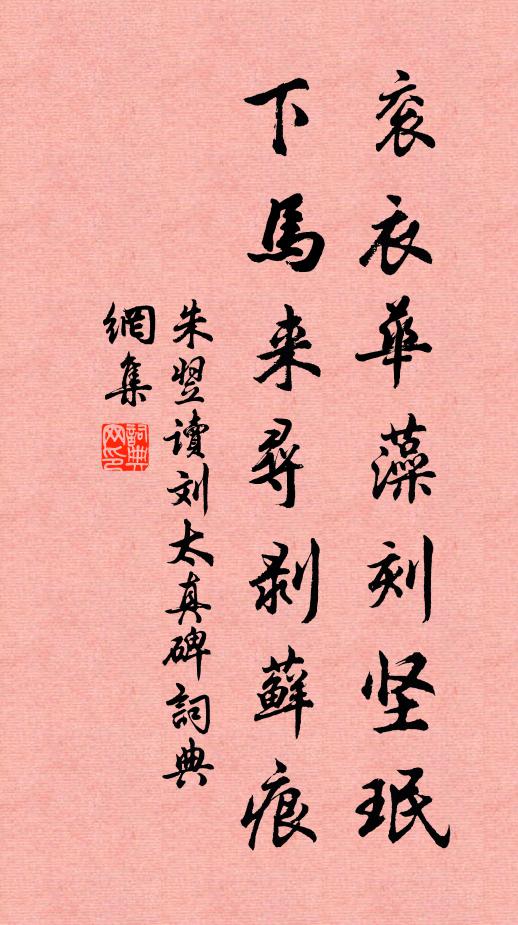 衮衣华藻刻坚珉
下馬来尋剥蘚痕
朱翌读刘太真碑詞典
網集
詞典網印